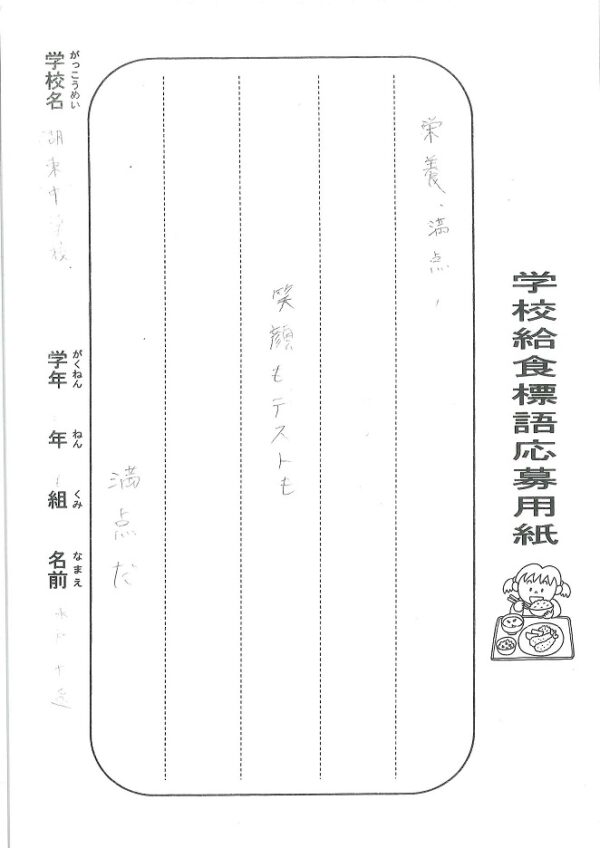 学校給食標語応募用紙
栄養、満点、
笑顔もテストも
満点だ
がっこうめい
学校名 湖東中学校
がくねん ねん くみ なまえ
学年 年 組 名前